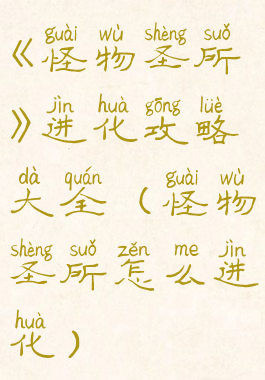 guài wù shèng suǒ
《怪物圣所
jìn huà gōng lüè
》进化攻略
dà quán guài wù
大全（怪物
shèng suǒ zěn me jìn
圣所怎么进
huà
化）